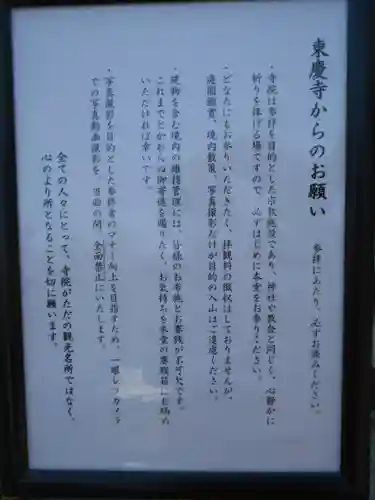 東慶寺からのお願い
参拝にあたり、必ずお読みください。
・寺院は参拝を目的とした宗教施設であり、神社や教会と同じく、心静かに
祈りを捧げる場ですので、必ずはじめに本堂をお参りください。
・どなたにもお参りいただきたく、拝観料の徴収はしておりませんが、
庭園鑑賞、境内散策、写真撮影だけが目的の入山はご遠慮ください。
・建物を含む境内の維持管理には、皆様のお布施とお賽銭が不可欠です。
これまでどおりの御寄進を賜りたく、お気持ちを本堂の賽銭箱にお納め
いただければ幸いです。
・写真撮影を目的とした参拝者のマナー向上を目指すため、一眼レフカメラ
での写真動画撮影を、当面の間、全面禁止にいたします。
全ての人々にとって、寺院がただの観光名所ではなく、
心のより所となることを切に願います。